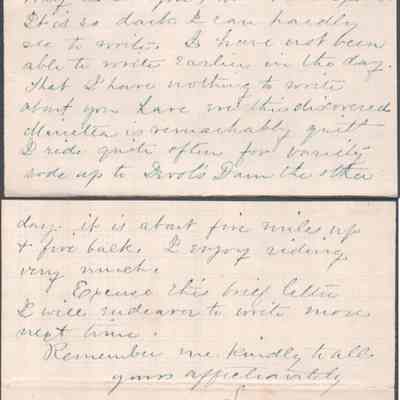 It is so dark I can hardly
see to write. I have not been
able to write earlier in the day.
that I have nothing to write
about you have
is remarkably quiet
I ride quite often for variety
rode up to Dam the other
day. it is about five miles up
& five back. I enjoy riding
very much.
Excuse this brief letter
I will endeavor to write more
next time.
Remember me kindly to all
yours affectionately